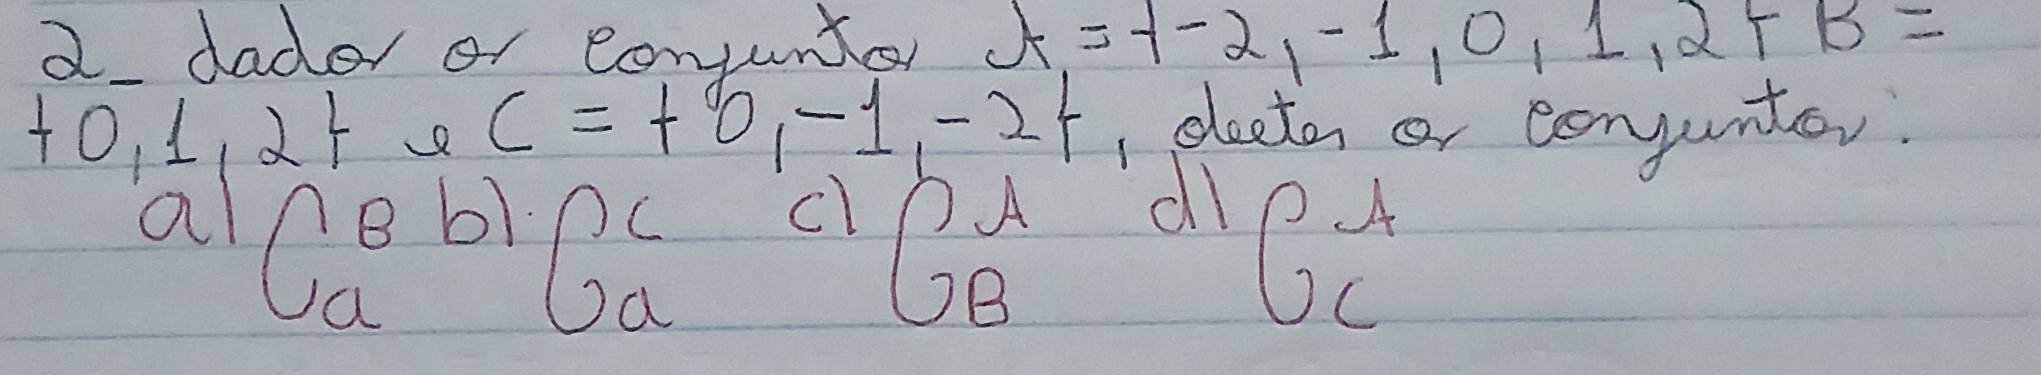 2_ dados os conjuntos A = {-2, -1, 0, 1, 2} B =
{0, 1, 2} e C = {0, -1, -2}, deeter os conjuntos:
a) C B a b) C C a c) C A B d) C A C